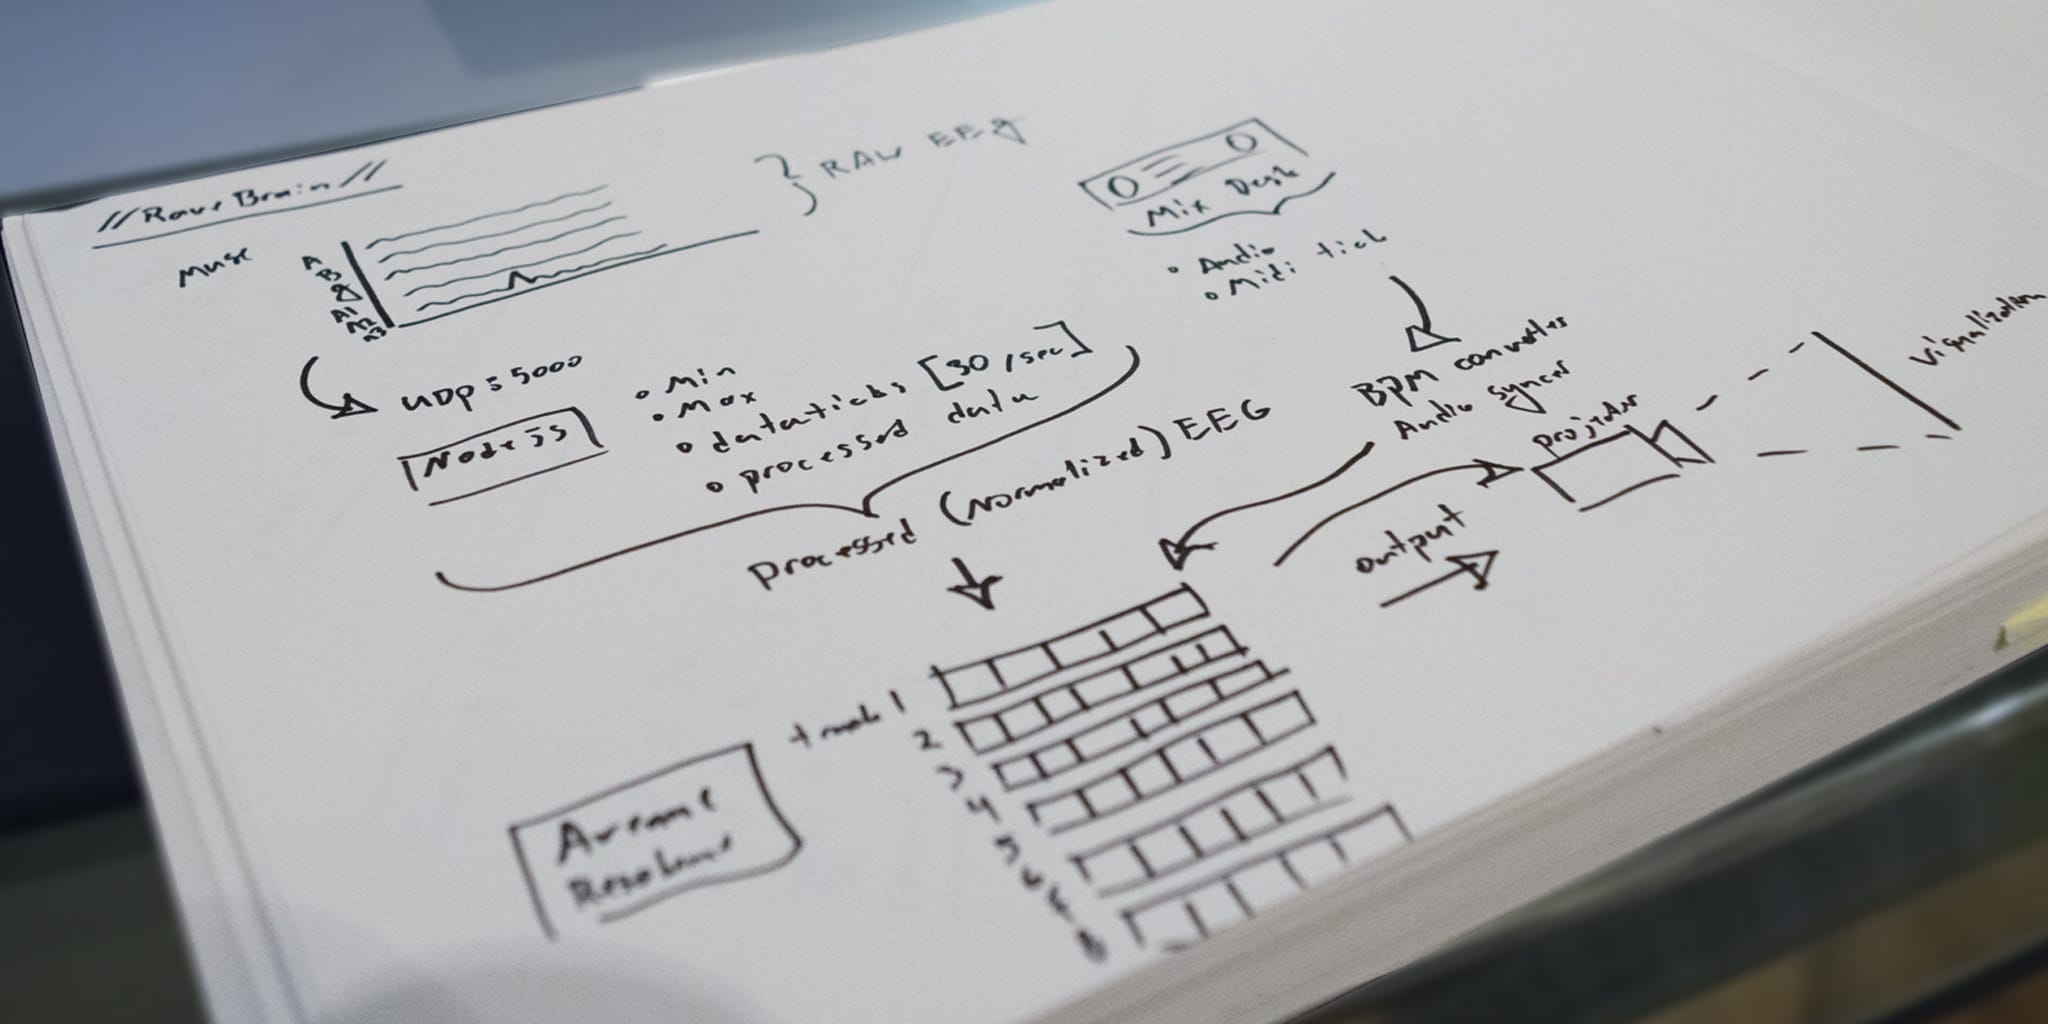 //Rave Brain//
Muse
A
B
A1
A2
A3
} RAW EEG
Mix Desk
• Audio
• Midi tick
UDP : 5000
Node js
• Min
• Max
• dataticks [30 /sec]
• processed data
processed (normalized) EEG
BPM converter
Audio syncer
projector
visualization
output
track 1
2
3
4
5
6
7
8
Arena
Resolume